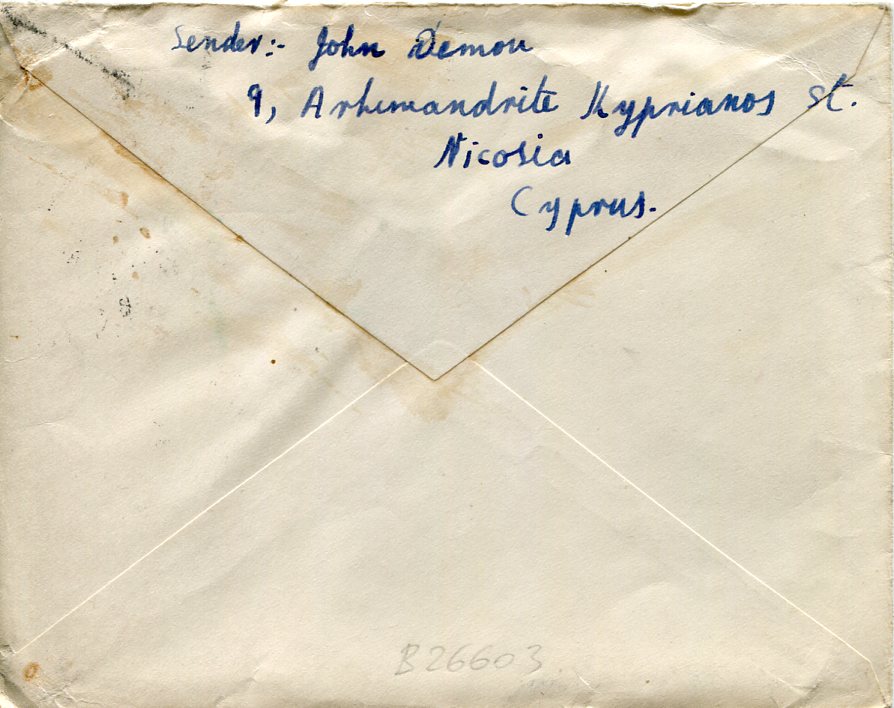 Sender:- John Demou
9, Arhimandrite Kyprianos St.
Nicosia
Cyprus.
B26603